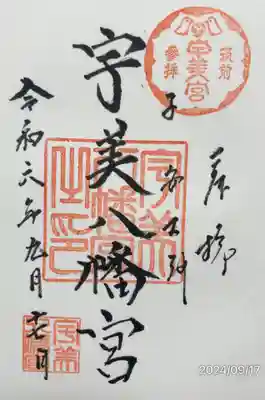 筑前
宇美宮
参拝
奉拝
子安大神
宇美八幡宮
宇美八幡宮之印
令和六年九月十七日
2024/09/17